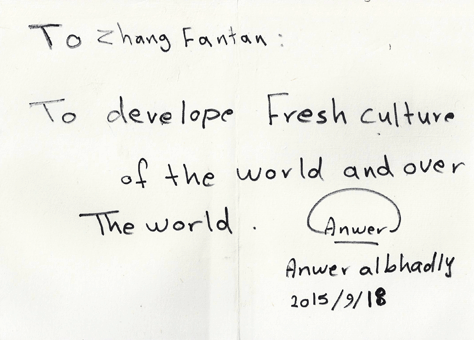 To Zhang Fantan:
To develope Fresh culture
of the world and over
The world.
Anwer
Anwer albhadly
2015/9/18